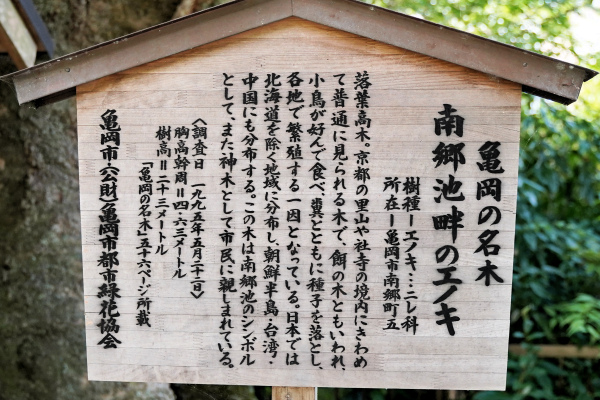 亀岡の名木
南郷池畔のエノキ
樹種ーエノキ…ニレ科
所在ー亀岡市南郷町五
落葉高木。京都の里山や社寺の境内にきわめ
て普通に見られる木で、餌の木ともいわれ、
小鳥が好んで食べ、糞とともに種子を落とし、
各地で繁殖する一因となっている。日本では
北海道を除く地域に分布し、朝鮮半島・台湾・
中国にも分布する。この木は南郷池のシンボル
として、また神木として市民に親しまれている。
〈調査日 一九九五年五月二十一日〉
胸高幹周＝四・六三メートル
樹高＝二十三メートル
「亀岡の名木」五十六ページ所載
亀岡市 (公財)亀岡市都市緑花協会